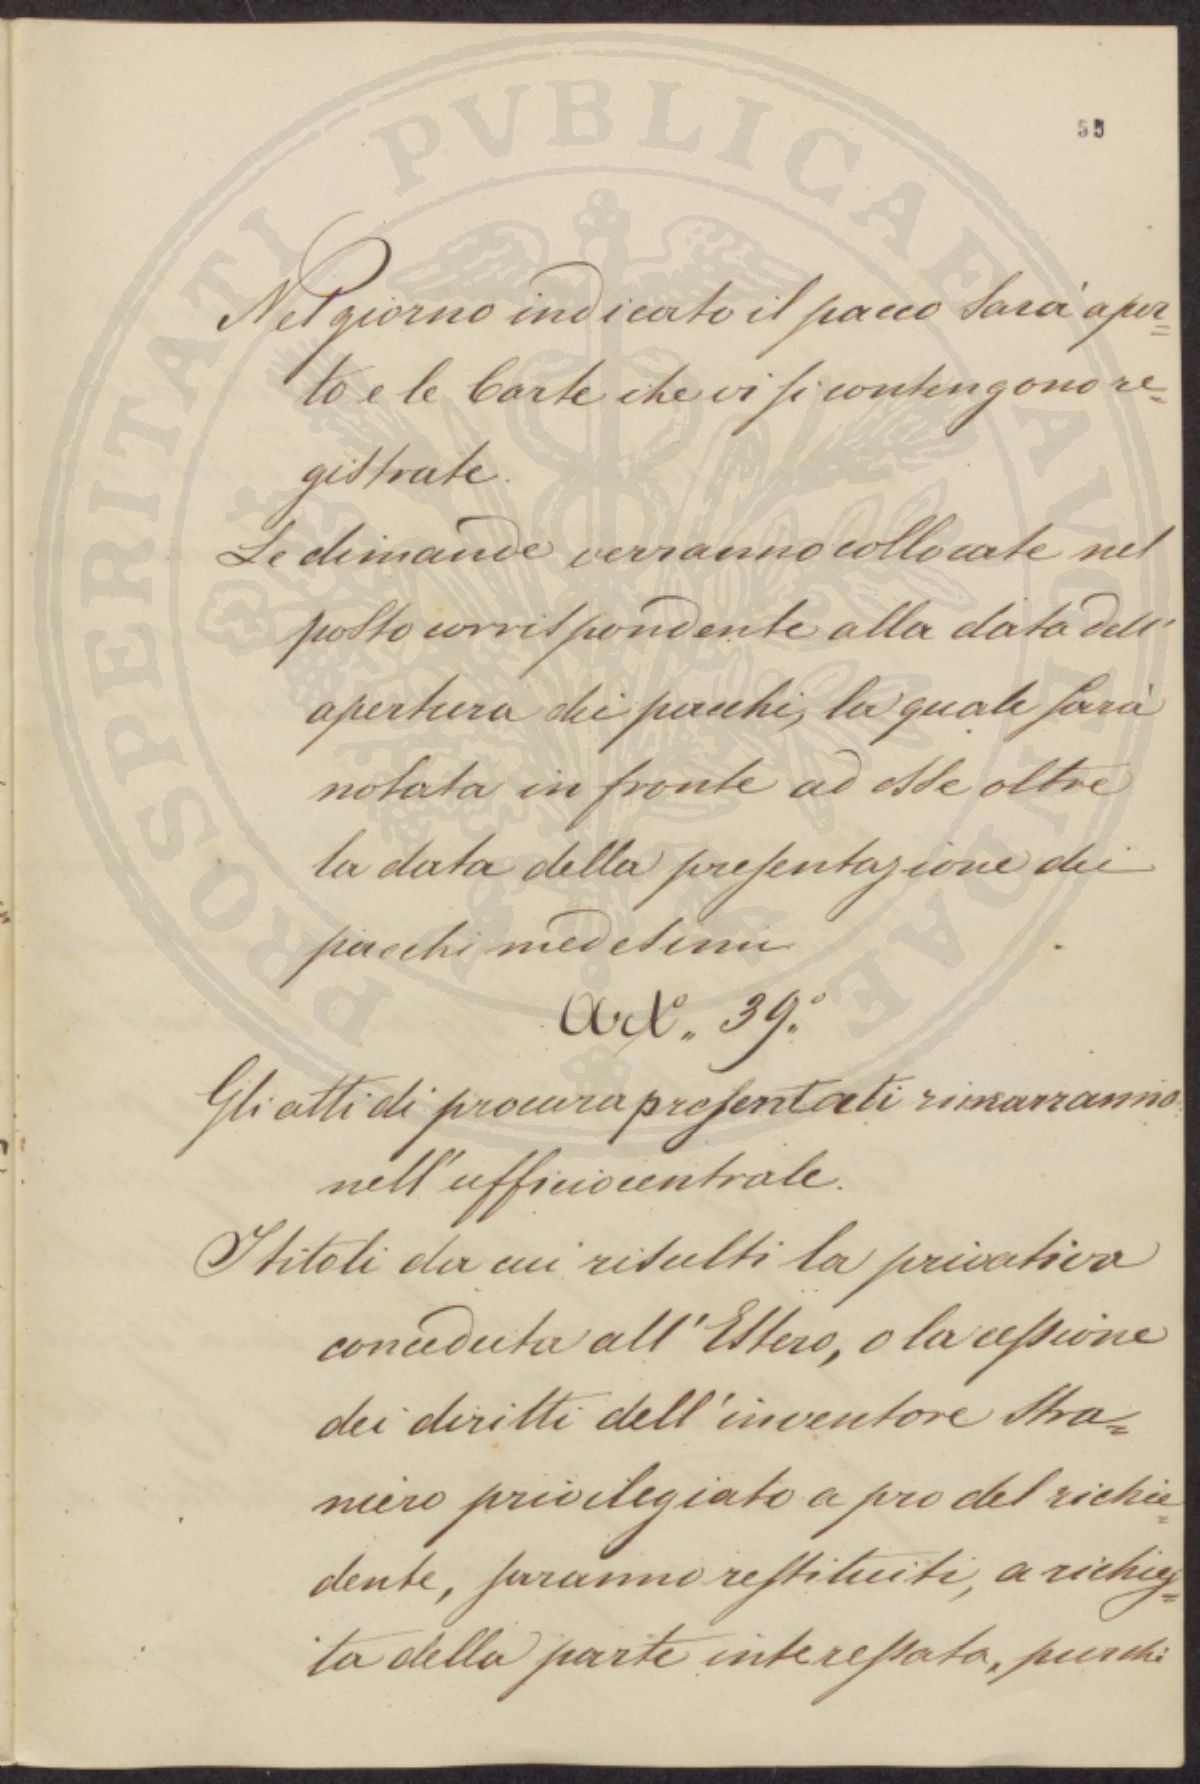 PROSPERITATI PVBLICAE AVGENDAE
55
Nel giorno indicato il pacco sarà aper=
to e le Carte che vi si contengono re=
gistrate.
Le dimande verranno collocate nel
posto corrispondente alla data dell'
apertura dei pacchi, la quale sarà
notata in fronte ad esse oltre
la data della presentazione dei
pacchi medesimi
Art.° 39.°
Gli atti di procura presentati rimarranno
nell'ufficio centrale.
I titoli da cui risulti la privativa
conceduta all'Estero, o la cessione
dei diritti dell'inventore stra=
niero privilegiato a pro del richie=
dente, saranno restituiti, a richies=
ta della parte interessata, purchè